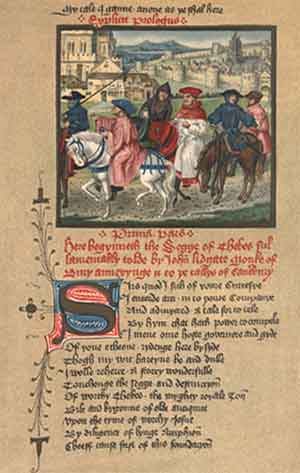 my tale I gynne anone as ye shal here
Explicit Prologus
Prima Pars
Here begynneth the Segge of Thebes ful
lamentably tolde by John lidgate monke of
Bury
Sirs quod I sith of youre
I entende
And a tale for to telle
By hym that hath power to compelle
I mene oure hoste governere and gyde
Of you echeone rydenge here by syde
Thogh my wit bareyne be and dulle
I wolle reherce a storey wonderfulle
Touchenge the Segge and destruccion
Of worthy Thebes the myghty royale Ton
Bilt and begonne of olde antiquite
Upon the tyme of worthy Josue
By diligence of kynge Amphion
Cheeff cause first of this foundacion